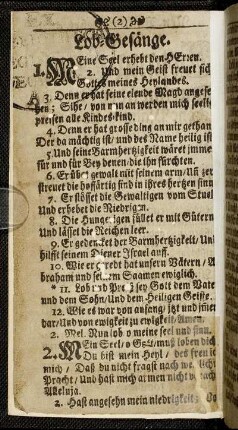 (2)
Lob-Gesänge.
1. MEine Seel erhebt den HErren.
2. Und mein Geist freuet sich
Gottes meines Heylandes.
3. Denn er hat seine elende Magd angese
hen; Sihe / von nun an werden mich seelig
preisen alle Kindes-kind.
4. Denn er hat grosse ding an mir gethan
Der da mächtig ist / und des Name heilig ist
5. Und seine Barmhertzigkeit wäret imme
für und für Bey denen die ihn fürchten.
6. Er übet gewalt mit seinem arm / Uñ zer
streuet die hoffärtig sind in ihres hertzen sinn
7. Er stösset die Gewaltigen vom Stuel
Und erhebet die Niedrigen.
8. Die Hungerigen füllet er mit Gütern
Und lässet die Reichen leer.
9. Er gedencket der Barmhertzigkeit / Und
hilfft seinem Diener Israel auff.
10. Wie er geredt hat unsern Vätern / A
braham und seinem Saamen ewiglich.
* 11. Lob und Preiß sey Gott dem Vate
und dem Sohn / Und dem Heiligen Geiste.
12. Wie es war von anfang / jetzt und im̃er
dar / Und von ewigkeit zu ewigkeit / Amen.
2. Mel. Nun lob o meine seel und sinn.
2. MEin Seel / o Gott / muß loben dich
Du bist mein Heyl / des freu ic
mich / Daß du nicht fragst nach weltlich
Pracht / Und hast mich armen nicht veracht
Alleluja.
2. Hast angesehn mein niedrigkeit